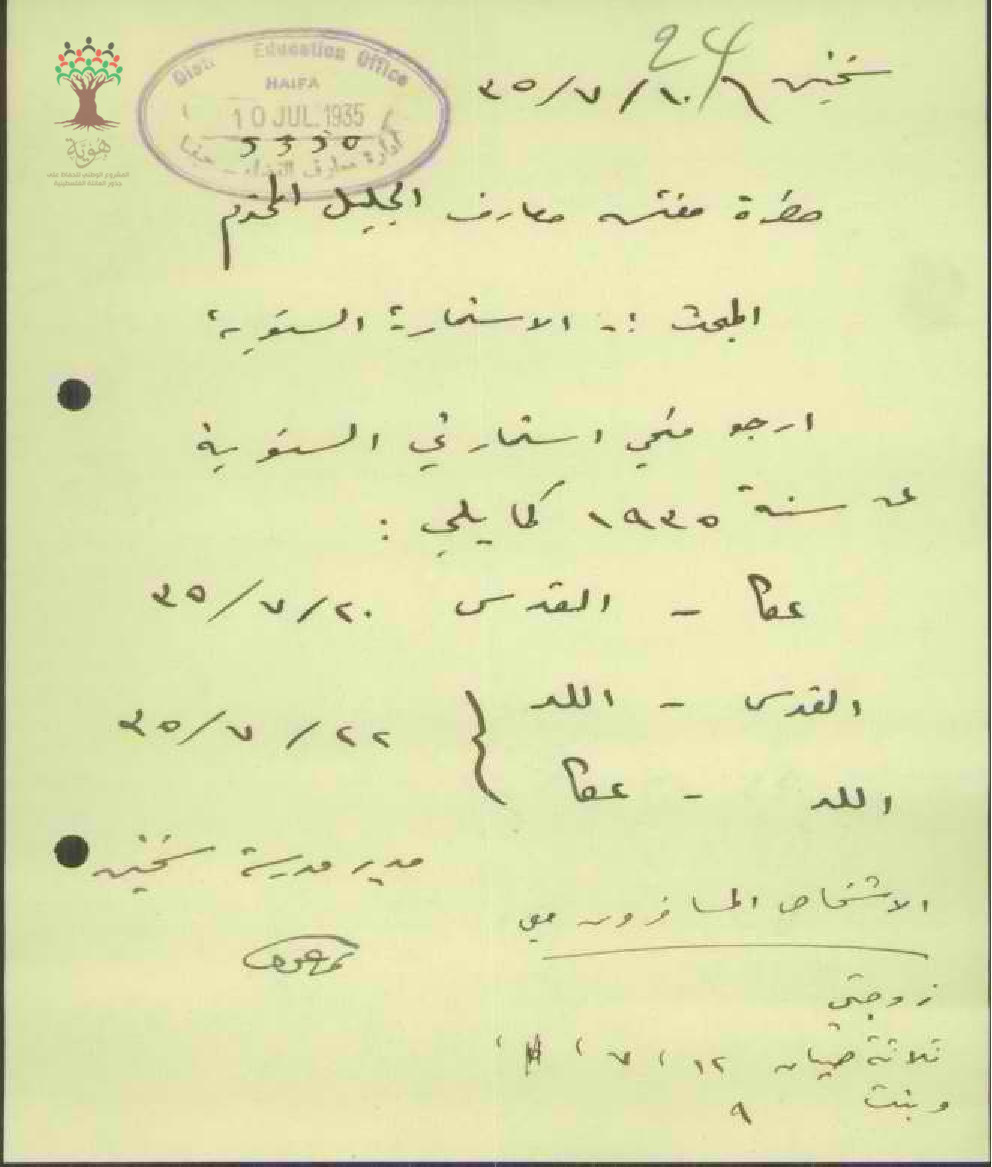 24
سخنين ١٠/٧/٣٥
District Education Office
HAIFA
10 JUL. 1935
5350
ادارة معارف اللواء - حيفا
هُويّة
المشروع الوطني للحفاظ على
جذور العائلة الفلسطينية
حضرة مفتش معارف الجليل المحترم
المبحث :- الاستمارة السنوية
ارجو منحي استمارتي السنوية
عن سنة ١٩٣٥ كما يلي :
عكا - القدس ٢٠/٧/٣٥
القدس - اللد
} ٢٢/٧/٣٥
اللد - عكا
مدير مدرسة سخنين
الاشخاص المسافرون معي
زوجتي
ثلاثة صبيان ١٢ ، ٧ ،
وبنت ٩